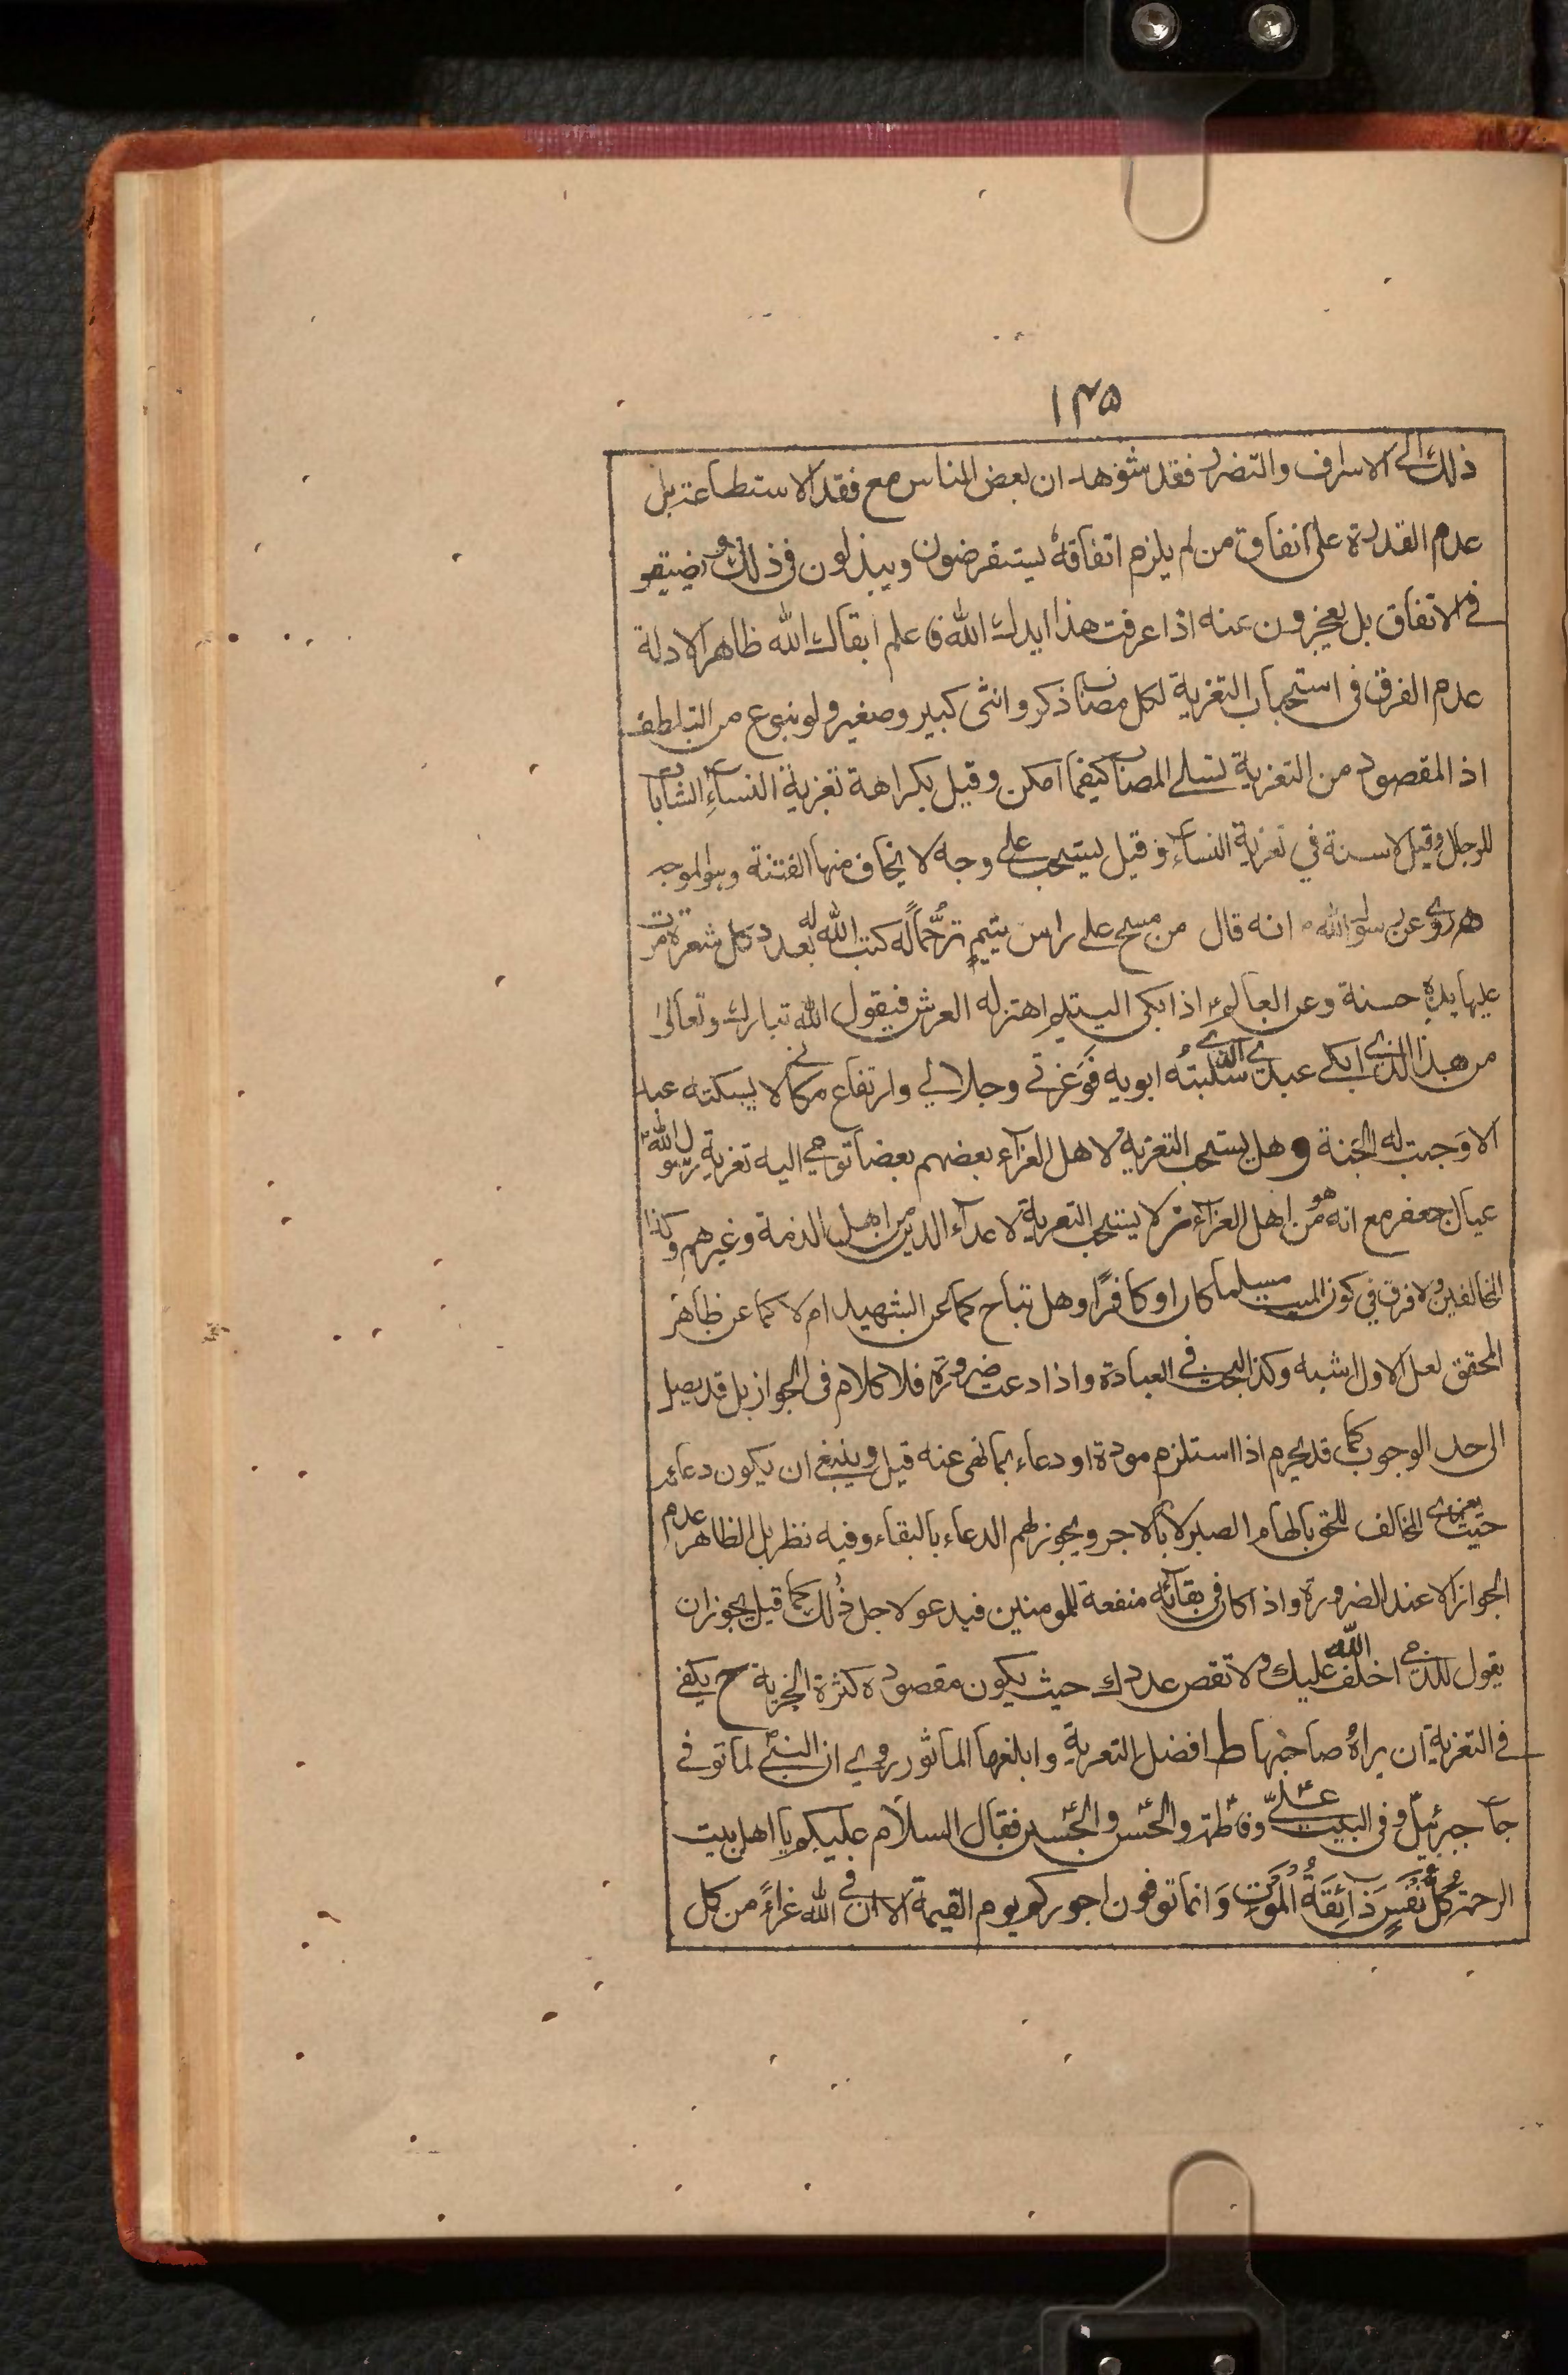 ١٣٥
ذلك الى الاسراف والتضرر فقد شوهد ان بعض الناس مع فقد الاستطاعة بل
عدم القدرة على انفاق من لم يلزم انفاقه يستقرضون ويبذلون في ذلك
في الانفاق بل يعجزون عنه اذا عرفت هذا ايدك الله فاعلم ابقاك الله ظاهر الادلة
عدم الفرق في استحباب التعزية لكل مصاب ذكر وانثى كبير وصغير ولو بنوع من التلطف
اذ المقصود من التعزية تسلى المصاب كيفما امكن وقيل بكراهة تعزية النساء الشابات
للرجال وقيل لا سنة في تعزية النساء وقيل يستحب على وجه لا يخاف منها الفتنة وهو الموجه
روى عن رسول الله انه قال من مسح على راس يتيم ترحماً له كتب الله له بعدد كل شعرة مرت
عليها يده حسنة وعن العالم اذا بكى اليتيم اهتز له العرش فيقول الله تبارك وتعالى
من هذا الذي ابكى عبدي الذي سلبته ابويه فوعزتي وجلالي وارتفاع مكاني لا يسكته عبد
الا وجبت له الجنة وهل يستحب التعزية لاهل العزاء بعضهم بعضا توحي اليه تعزية رسول الله
عيال جعفر مع انه هو من اهل العزاء ثم لا يستحب التعزية لاعداء الدين من اهل الذمة وغيرهم وكذا
المخالفين ولا فرق في كون الميت مسلما كان او كافرًا وهل تباح كما عن الشهيد ام لا كما عن ظاهر
المحقق لعل الاول اشبه وكذا البحث في العبادة واذا دعت ضرورة فلا كلام في الجواز بل قد يصل
الى حد الوجوب كما قد يحرم اذا استلزم مودة او دعاء بما نهى عنه قيل وينبغي ان يكون دعائه
حيث يعزى المخالف للحق بالهام الصبر لا بالاجر ويجوز لهم الدعاء بالبقاء وفيه نظر بل الظاهر عدم
الجواز الا عند الضرورة واذا كان في بقائه منفعة للمومنين فيدعو لاجل ذلك كما قيل يجوز ان
يقول للذمي اخلف الله عليك ولا نقص عددك حيث يكون مقصوده كثرة الجزية ح يكفي
في التعزية ان يراه صاحبها ط افضل التعزية وابلغها الماثور روي ان النبي لما توفي
جاء جبرئيل وفي البيت علي وفاطمة والحسن والحسين فقال السلام عليكم يا اهل بيت
الرحمة كُلُّ نَفْسٍ ذَائِقَةُ الْمَوْتِ وَانما توفون اجوركم يوم القيمة الا ان في الله عزاءً من كل